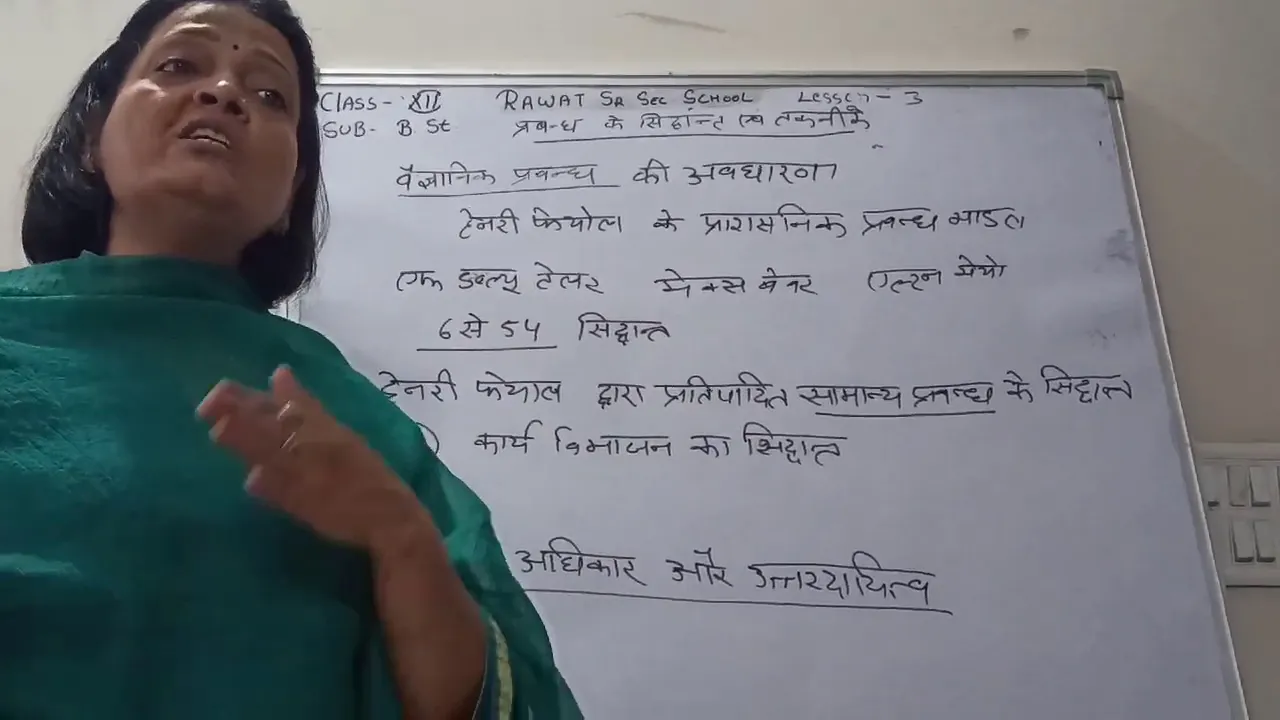 CLASS- XII RAWAT SR SEC SCHOOL LESSON- 3
SUB- B.St प्रबन्ध के सिद्धान्त एवं तकनीकें
वैज्ञानिक प्रबन्ध की अवधारणा
हेनरी फेयोल के प्रशासनिक प्रबन्ध माडल
एफ डब्ल्यू टेलर मेक्स वेबर एल्टन मेयो
6 से 54 सिद्धान्त
हेनरी फेयोल द्वारा प्रतिपादित सामान्य प्रबन्ध के सिद्धान्त
कार्य विभाजन का सिद्धान्त
अधिकार और उत्तरदायित्व